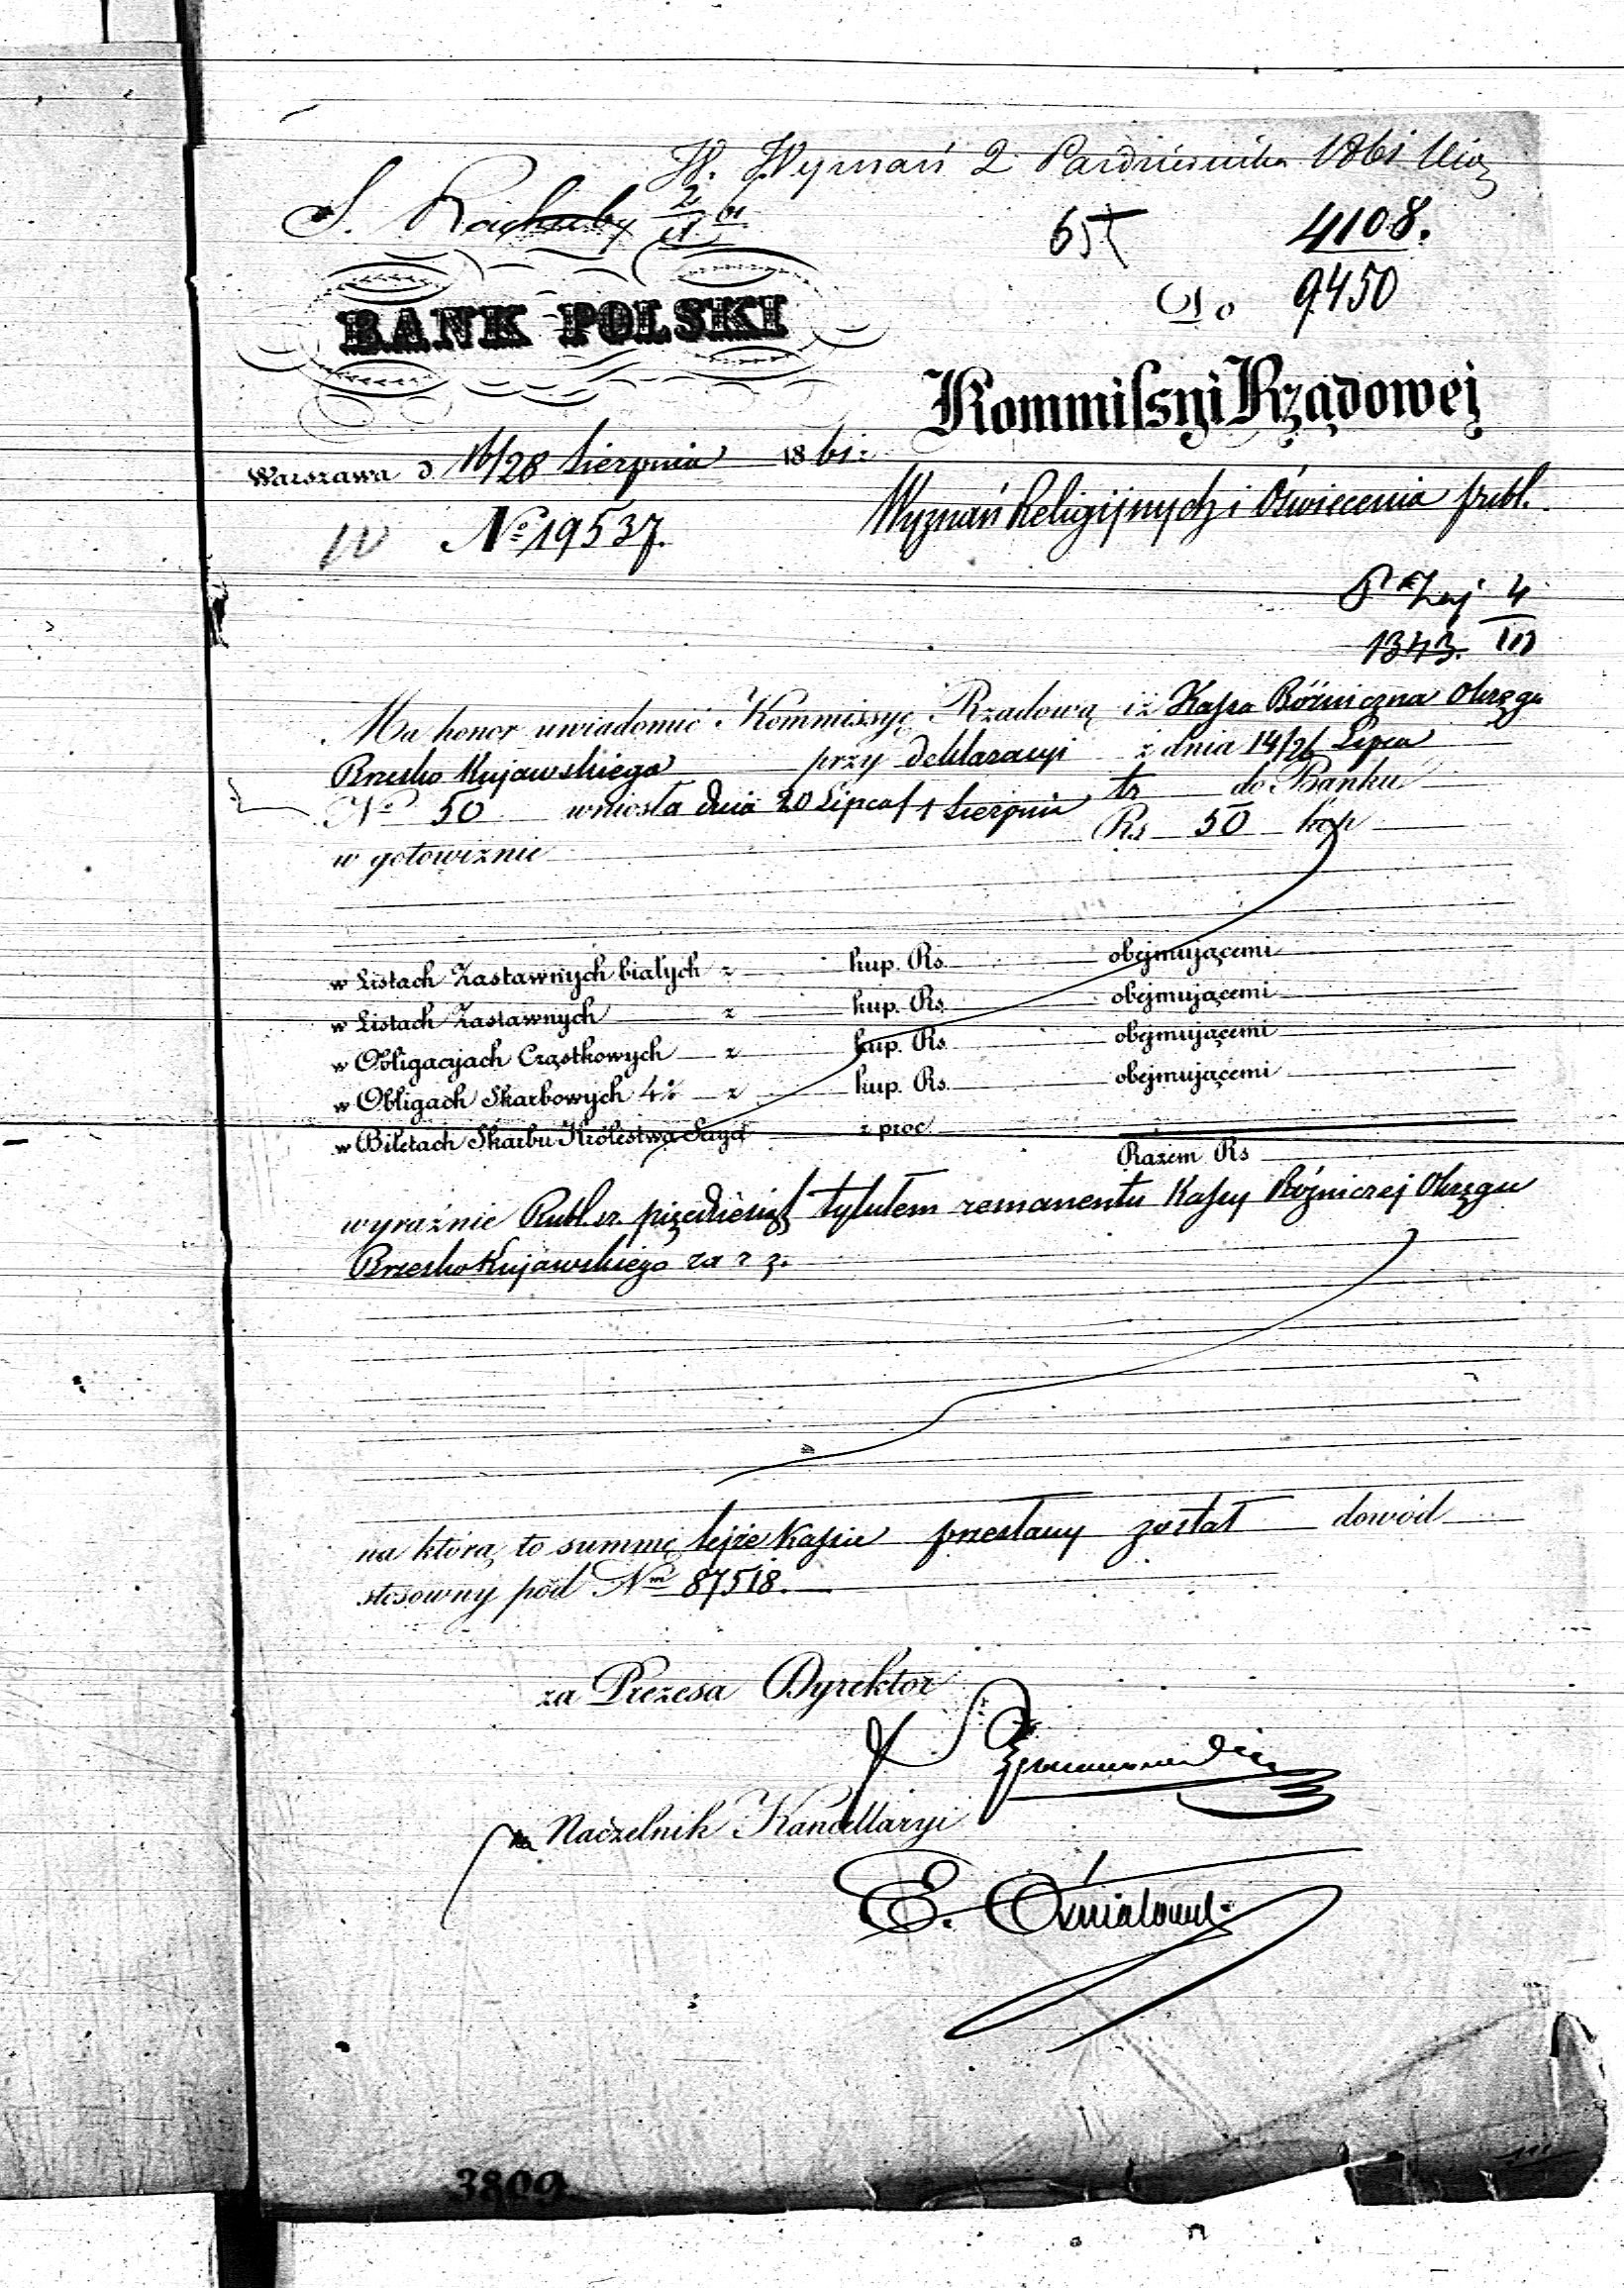 W. Wyznań 2 Października 1861
S. Rachuby
4108.
9450
BANK POLSKI
Do
Kommissyi Rządowej
Warszawa d. 16/28 Sierpnia 1861.
Wyznań Religijnych i Oświecenia publ.
W № 19537.
4
1343. III
Ma honor uwiadomić Kommissyę Rządową iż Kassa Bóżniczna Okręgu
Brzesko Kujawskiego przy deklaracyi z dnia 14/26 Lipca
№ 50 wniosła dnia 20 Lipca/1 Sierpnia tr do Banku
w gotowiźnie Rs 50 kop
w Listach Zastawnych białych z kup. Rs. obejmującemi
w Listach Zastawnych z kup. Rs. obejmującemi
w Obligacyjach Cząstkowych z kup. Rs. obejmującemi
w Obligach Skarbowych 4% z kup. Rs. obejmującemi
w Biletach Skarbu Królestwa z proc.
Razem Rs
wyraźnie Rubl. sr. pięćdziesiąt tytułem remanentu Kassy Bóżniczej Okręgu
Brzesko Kujawskiego za r z.
na którą to summę tejże Kassie przesłany został dowód
stosowny pod № 87518.
za Prezesa Dyrektor
Naczelnik Kancellaryi
E.
3809